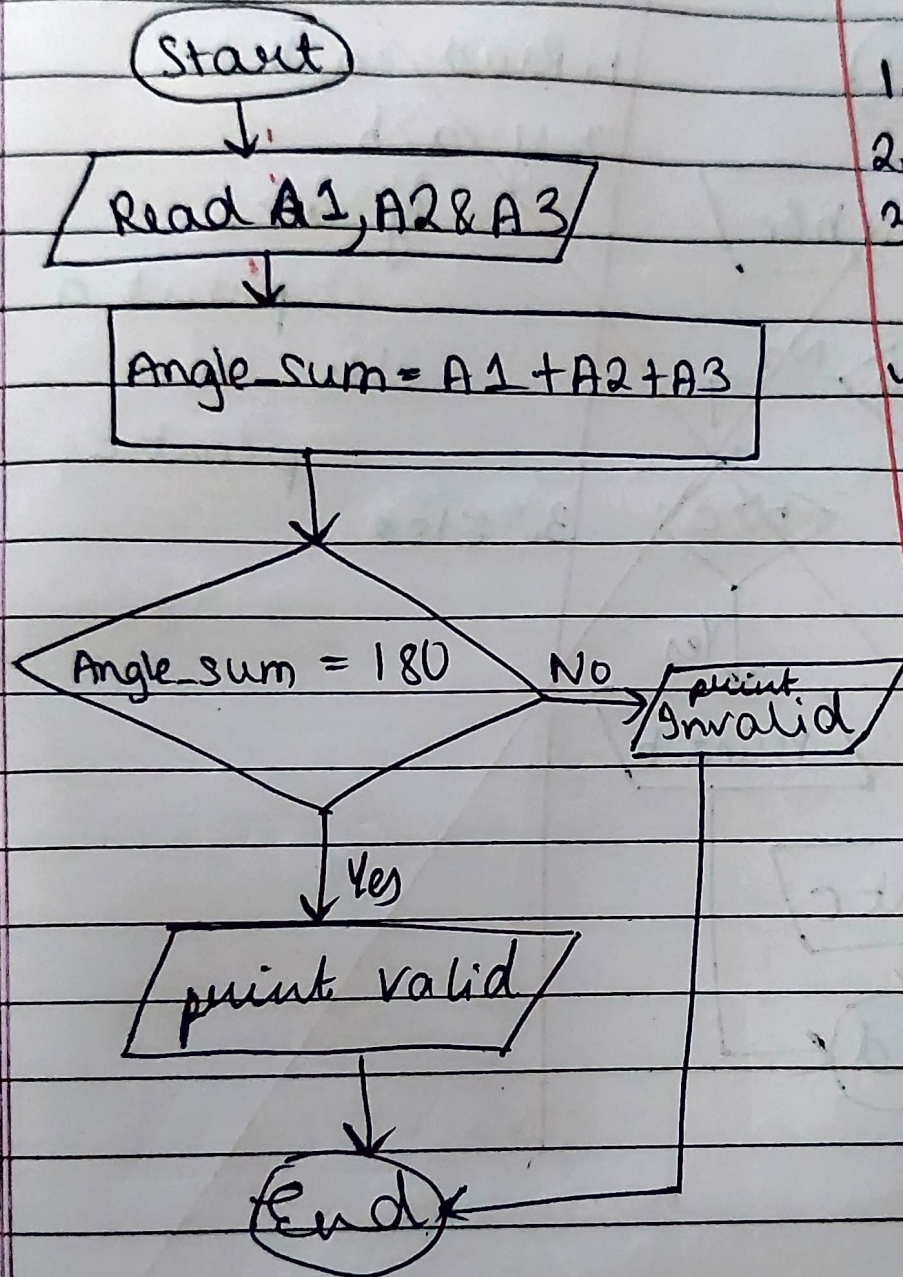 Start
1.
2.
Read A1, A2 & A3
Angle_sum = A1 + A2 + A3
Angle_sum = 180
No
print
Invalid
Yes
print valid
End